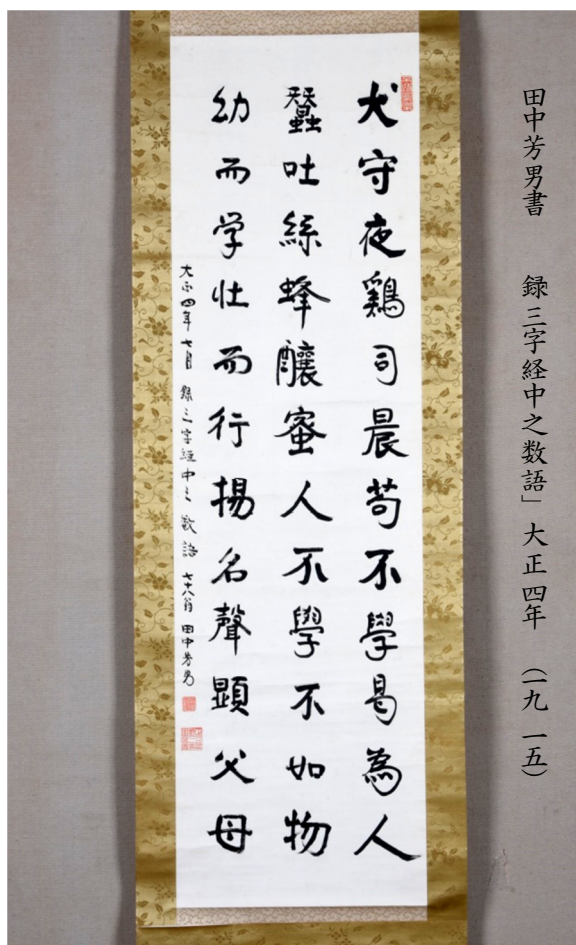 田中芳男書　録三字経中之数語」大正四年（一九一五）
犬守夜鶏司晨苟不學曷為人
蠶吐絲蜂釀蜜人不學不如物
幼而学壮而行揚名聲顯父母
大正四年七月録三字経中之数語七十八翁田中芳男